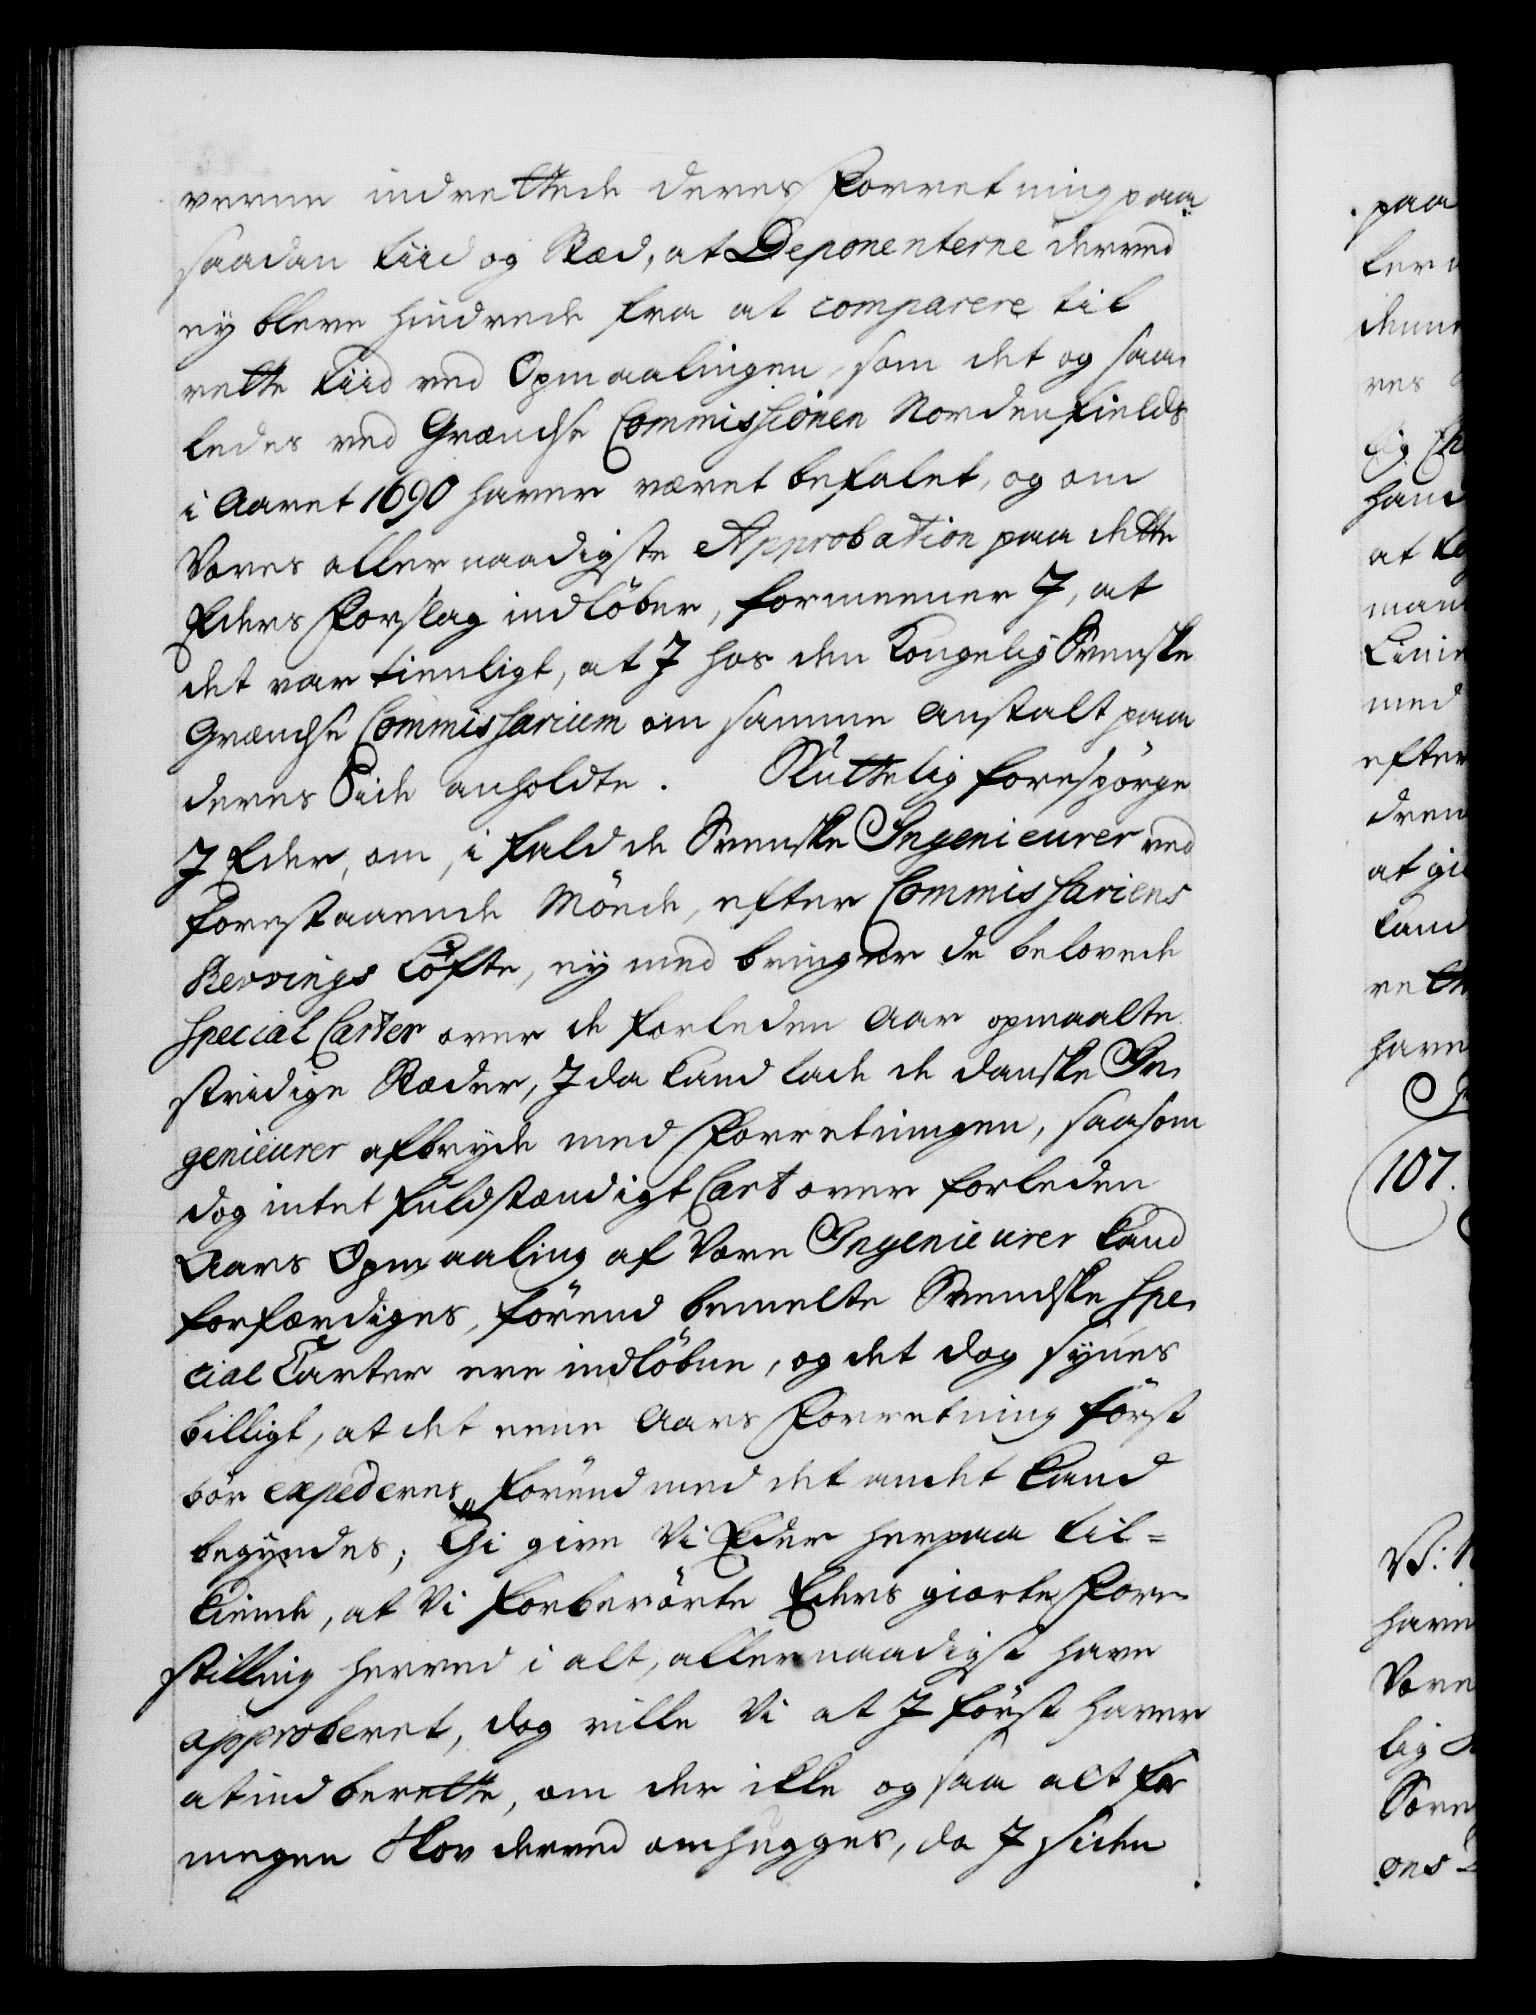 verne indrettede deres Forretning paa
saadan tiid og Stæd, at Deponenterne derved
ej bleve hindrede fra at comparere til
rette tiid ved Opmaalingen, som det og saa-
ledes ved Grændse Commissionen Nordenfields
i Aaret 1690 haver været befalet, og om
Vores allernaadigste Approbation paa dette
Eders Forslag indlöber, formeener I, at
det var tienligt, at I hos den Kongelig Svenske
Grændse Commissarium om samme anstalt paa
deres Side anholdte. Sluttelig forespörge
I Eder, om, i fald de Svenske Ingenieurer ved
forestaaende Möde, efter Commissariens
Löfte, ej med bringer de belovede
special Carter over de forleden Aar opmaalte
stridige Stæder, I da kand lade de danske In-
genieurer afbryde med Forretningen, saasom
dog intet fuldstændigt Cart over forleden
Aars Opmaaling af Vore Ingenieurer kand
forfærdiges, förend bemelte Svendske spe-
cial Carter ere indlöbne, og det dog synes
billigt, at det eene Aars Forretning först
bör expederes, förend med det andet Kand
begyndes; Thi give Vi Eder herpaa til-
kiende, at Vi forberörte Eders giorte Fore-
stilling herved i alt, allernaadigst have
approberet, dog ville Vi at I först haver
at indberette, om der ikke og saa alt for
megen Skov derved omhugges, da I siden
paa
ves
at
med
efter
107.